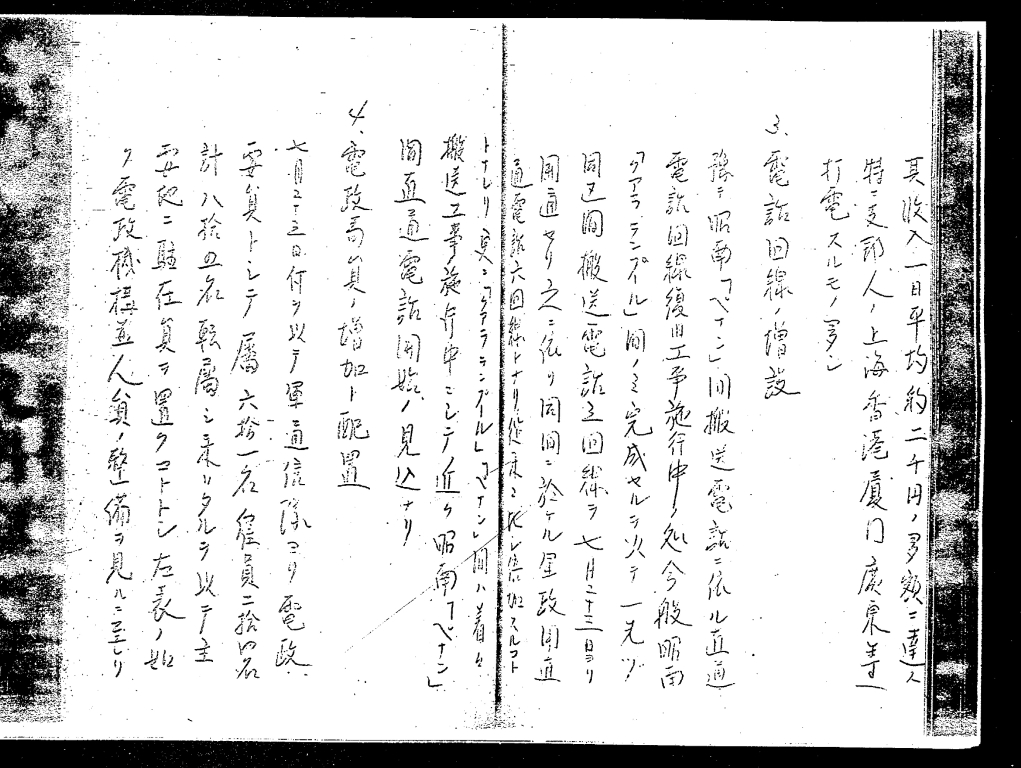 其收入一日平均約二千円ノ多額ニ達ス
特ニ支那人ノ上海香港厦門廣東等ニ
打電スルモノ多シ
3、電話回線ノ増設
予テ昭南「ペナン」間搬送電話ニ依ル直通
電話回線復旧工事施行中ノ処今般昭南
「クアラランプール」間ノミ完成セルヲ以テ一先ヅ
同区間搬送電話三回線ヲ七月二十三日ヨリ
開通セリ之ニ依リ同間ニ於ケル軍政用直
通電話六回線トナリ従来ニ比シ倍加スルコト
トナレリ更ニ「クアラランプール」「ペナン」間ハ着々
搬送工事施行中ニシテ近ク昭南「ペナン」
間直通電話開始ノ見込ナリ
4、電政局員ノ増加ト配置
七月二十三日付ヲ以テ軍通信隊ヨリ電政
要員トシテ属六拾一名雇員二拾四名
計八拾五名転属シ来リタルヲ以テ主
要地ニ駐在員ヲ置クコトトシ左表ノ如
ク電政機構並人員ノ整備ヲ見ルニ至レリ